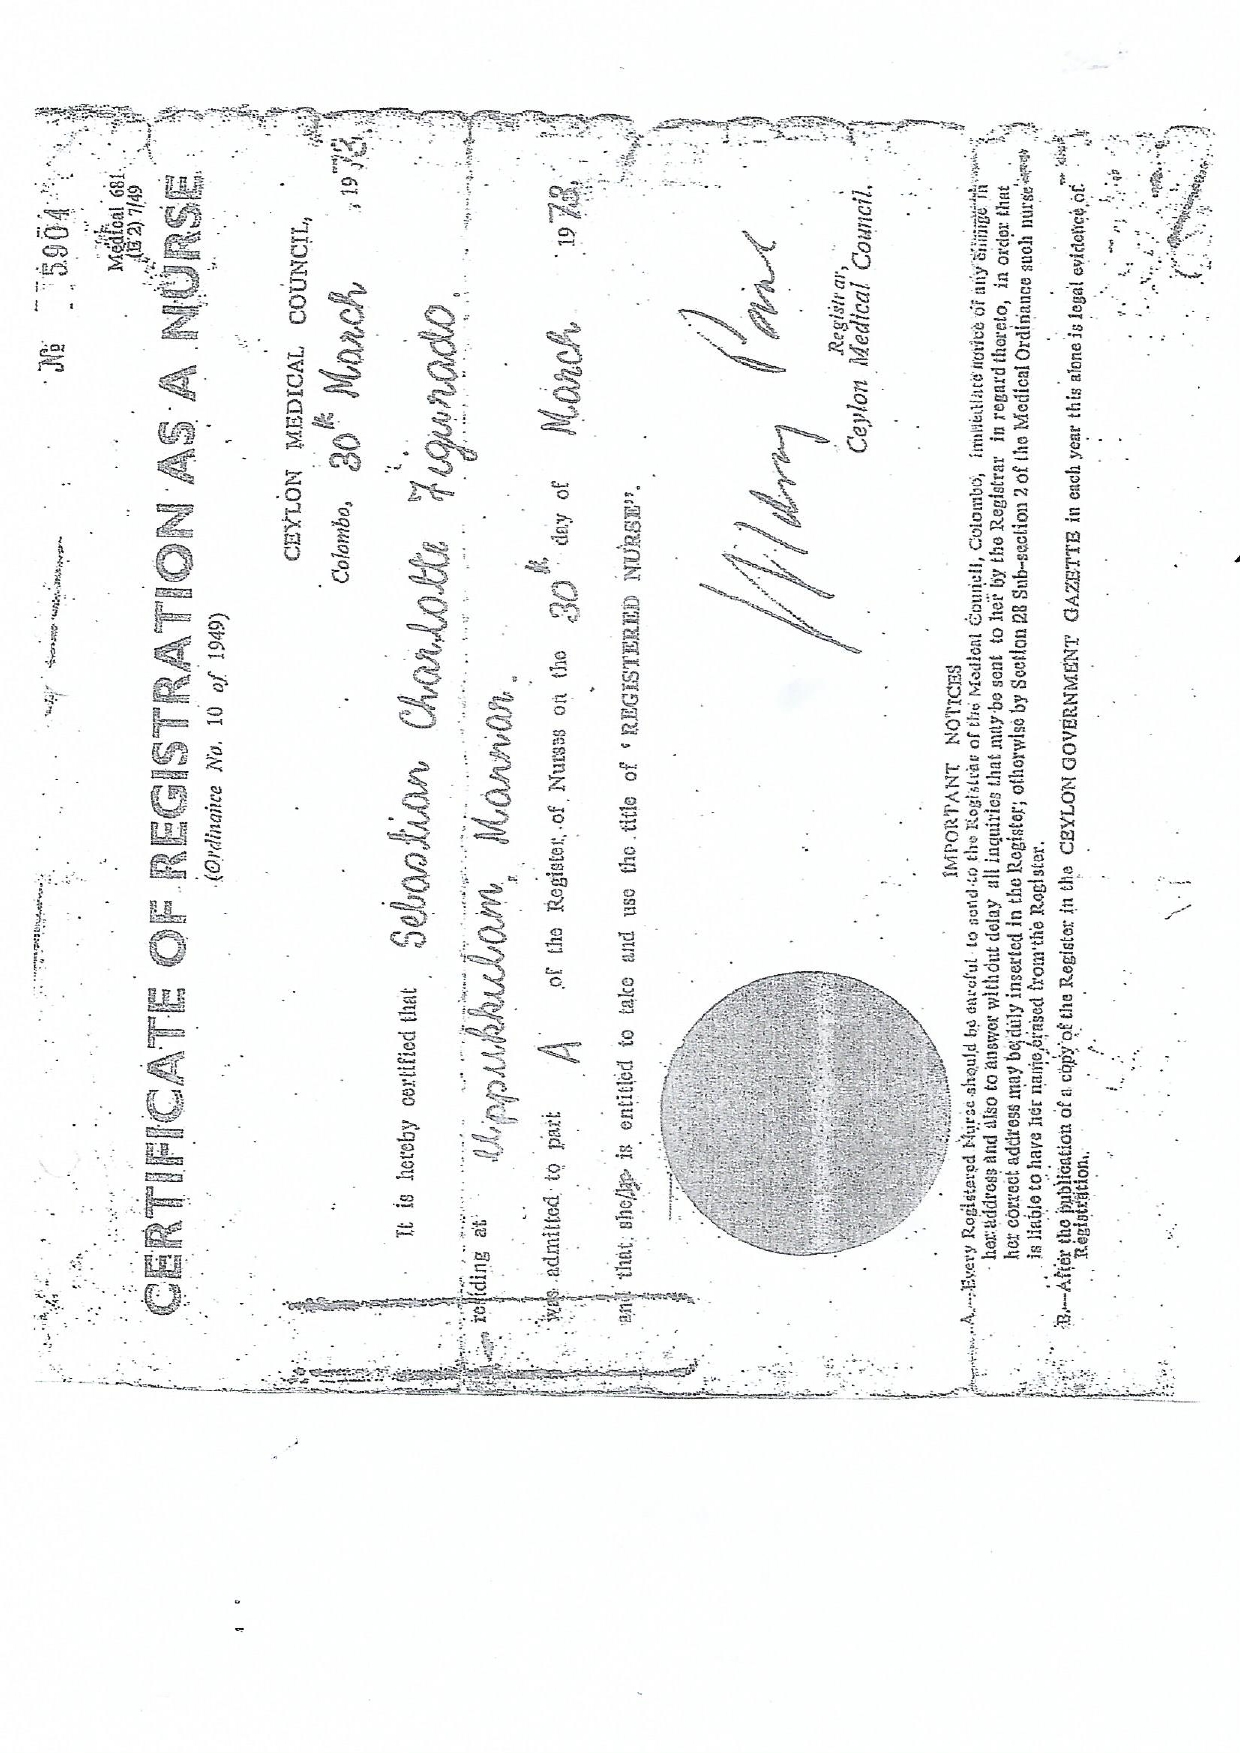 No 5904
Medical 681
(E 2) 7/49
CERTIFICATE OF REGISTRATION AS A NURSE
(Ordinance No. 10 of 1949)
CEYLON MEDICAL COUNCIL,
Colombo, 30th March , 1973.
It is hereby certified that Sebastian Charlotte Figurado.
residing at Uppukkulam, Mannar.
was admitted to part A of the Register of Nurses on the 30th day of March 1973,
and that she/he is entitled to take and use the title of "REGISTERED NURSE".
Registrar,
Ceylon Medical Council.
IMPORTANT NOTICES
A.—Every Registered Nurse should be careful to send to the Registrar of the Medical Council, Colombo, immediate notice of any change in
her address and also to answer without delay all inquiries that may be sent to her by the Registrar in regard thereto, in order that
her correct address may be duly inserted in the Register; otherwise by Section 28 Sub-section 2 of the Medical Ordinance such nurse
is liable to have her name erased from the Register.
B.—After the publication of a copy of the Register in the CEYLON GOVERNMENT GAZETTE in each year this alone is legal evidence of
Registration.